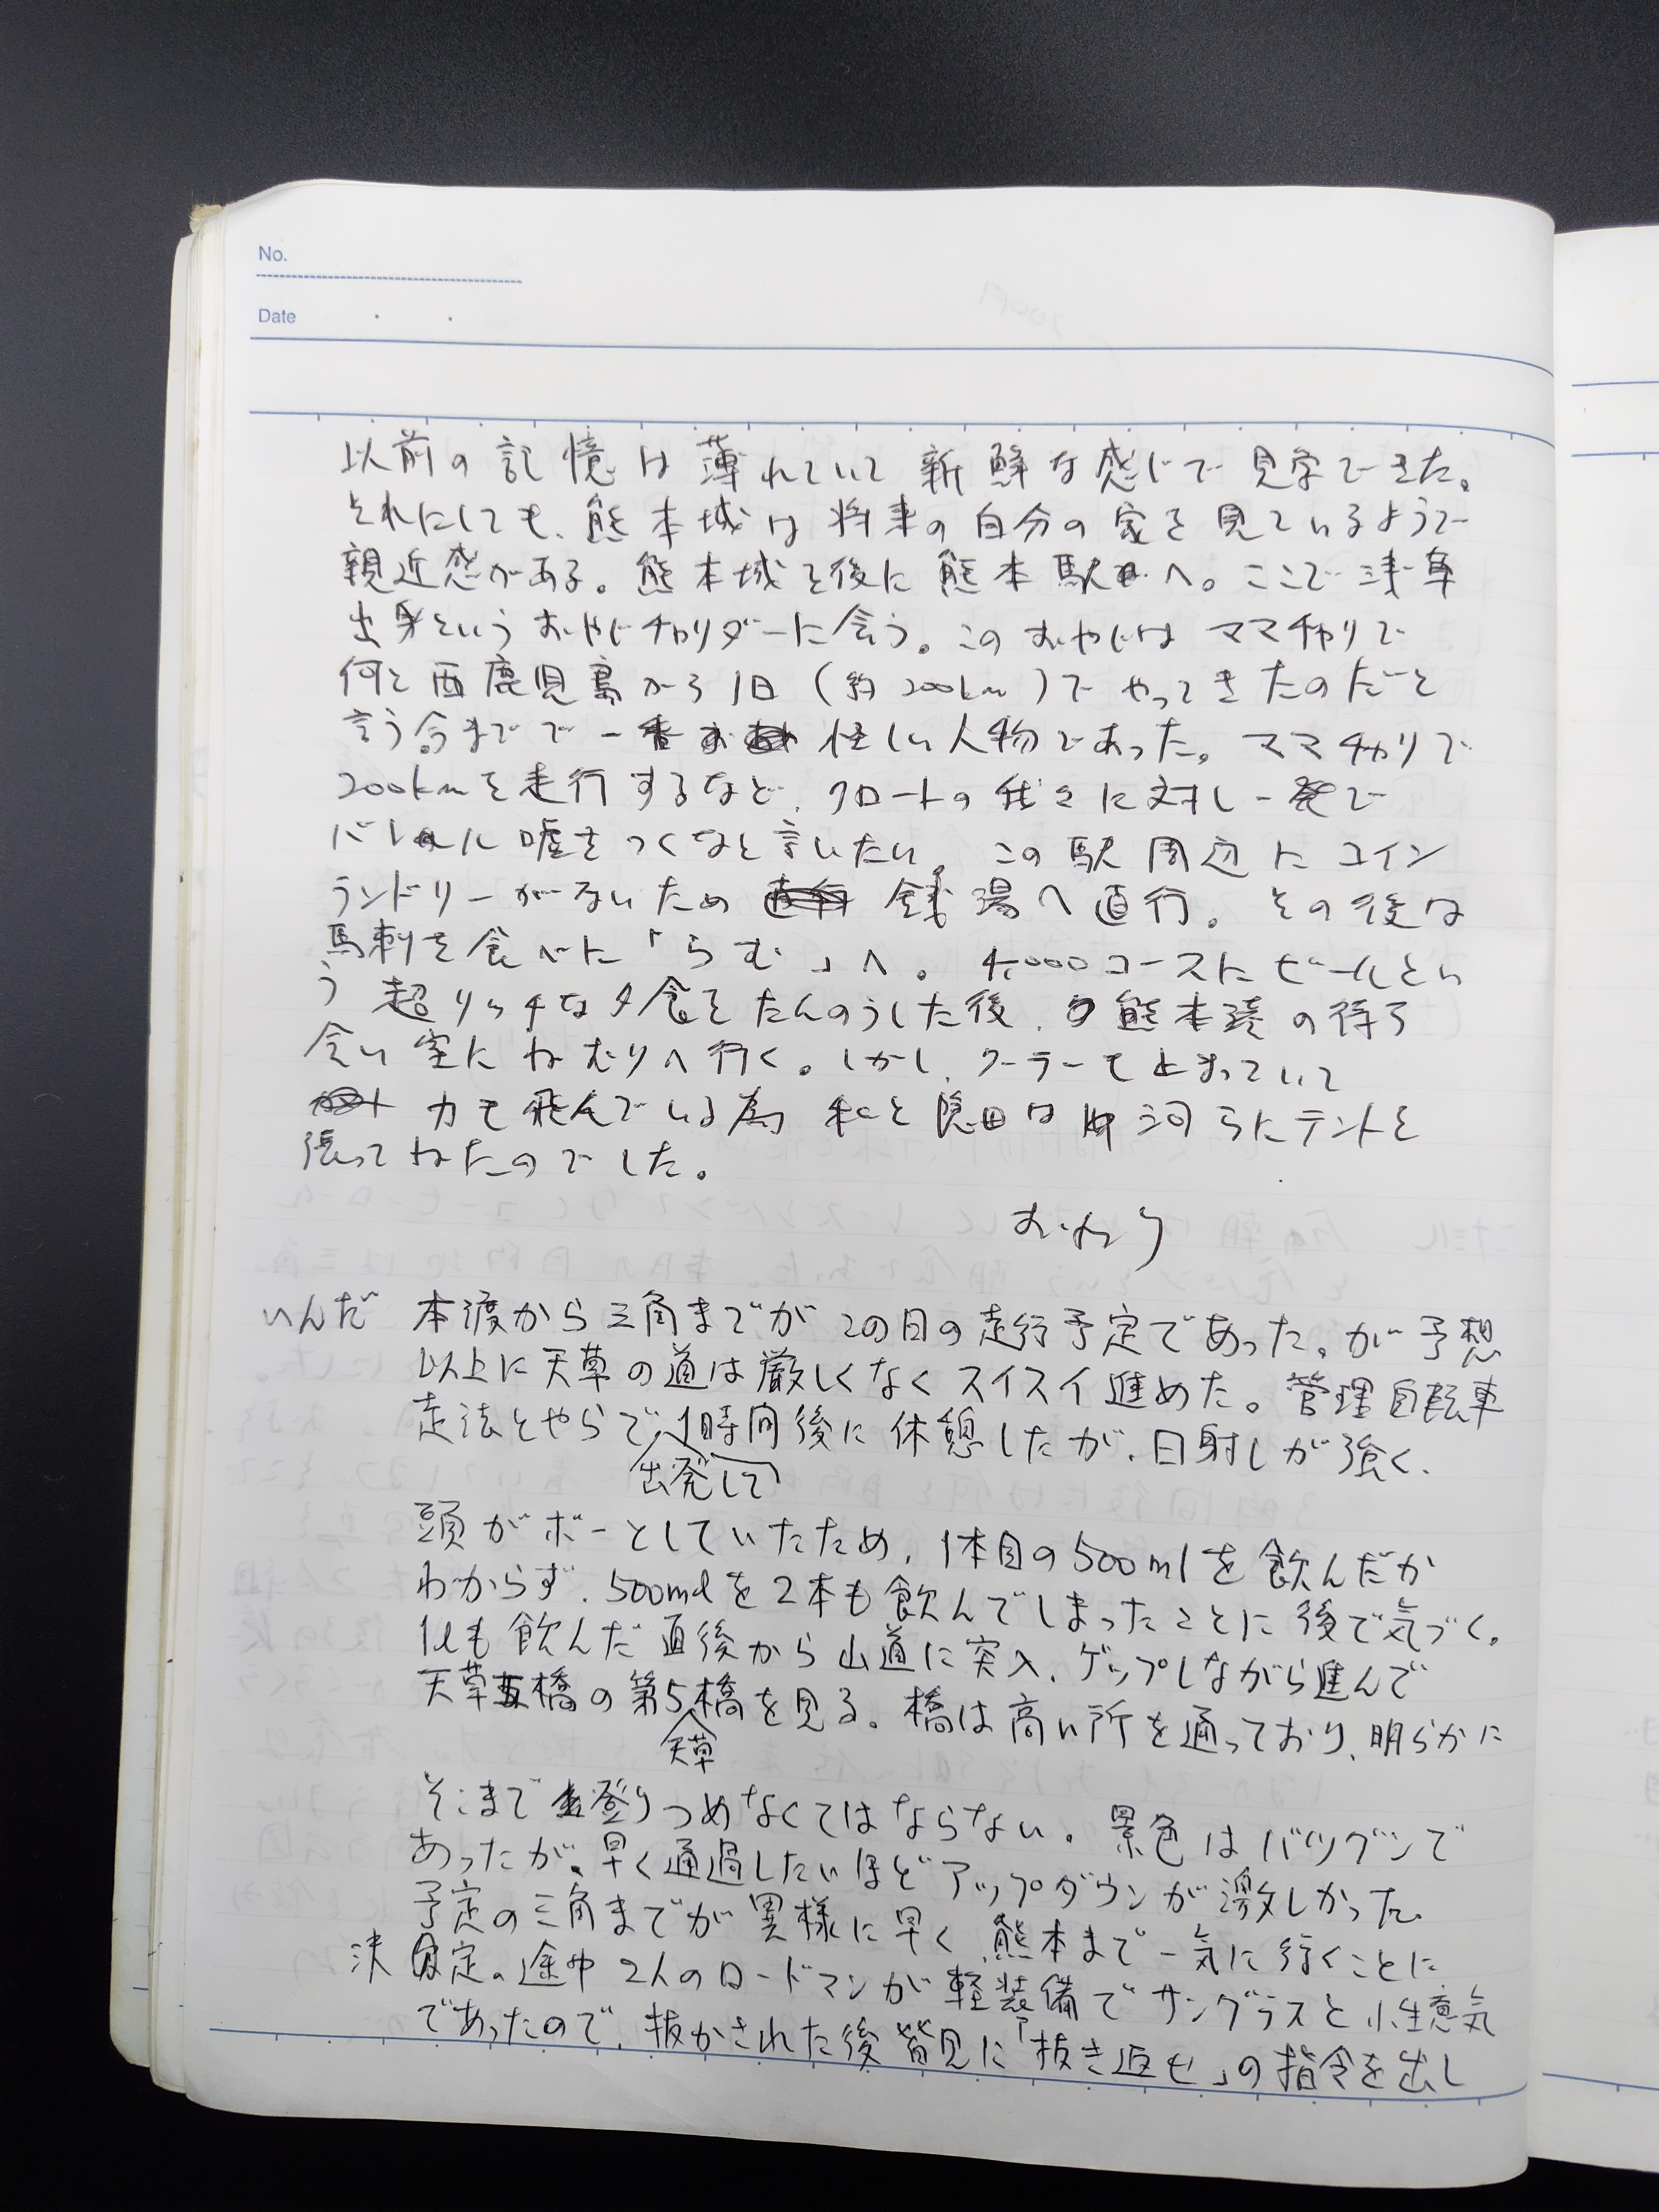 No.
Date
以前の記憶は薄れていて新鮮な感じで見学できた。
それにしても、熊本城は将来の自分の家を見ているようで
親近感がある。熊本城を後に熊本駅へ。ここで浅草
出身というおやじチャリダーに会う。このおやじはママチャリで
何と西鹿児島から1日（約200km）でやってきたのだと
言う。今までで一番怪しい人物であった。ママチャリで
200kmを走行するなど、クロートの我々に対し一発で
バレル嘘をつくなと言いたい。この駅周辺にコイン
ランドリーがないため銭湯へ直行。その後は
馬刺を食べに「らむ」へ。4,000コースにビールとい
う超リッチな夕食をたんのうした後、熊本港の待ち
合い室にねむりへ行く。しかし、クーラーも止まっていて
力も飛んでいる為私と隠田は河らにテントを
張ってねたのでした。
おわり
いんだ 本渡から三角までがこの日の走行予定であった。が予想
以上に天草の道は厳しくなくスイスイ進めた。管理自転車
走法とやらで、1時間後に休憩したが、日射しが強く、
出発して
頭がボーとしていたため、1本目の500mlを飲んだか
わからず、500mlを2本も飲んでしまったことに後で気づく。
1lも飲んだ直後から山道に突入、ゲップしながら進んで
天草五橋の第5橋を見る。橋は高い所を通っており、明らかに
天草
そこまで登りつめなくてはならない。景色はバツグンで
あったが、早く通過したいほどアップダウンが激しかった。
予定の三角までが異様に早く、熊本まで一気に行くことに
決定。途中2人のロードマンが軽装備でサングラスと小生意気
であったので、抜かされた後皆見に「抜き返せ」の指令を出し